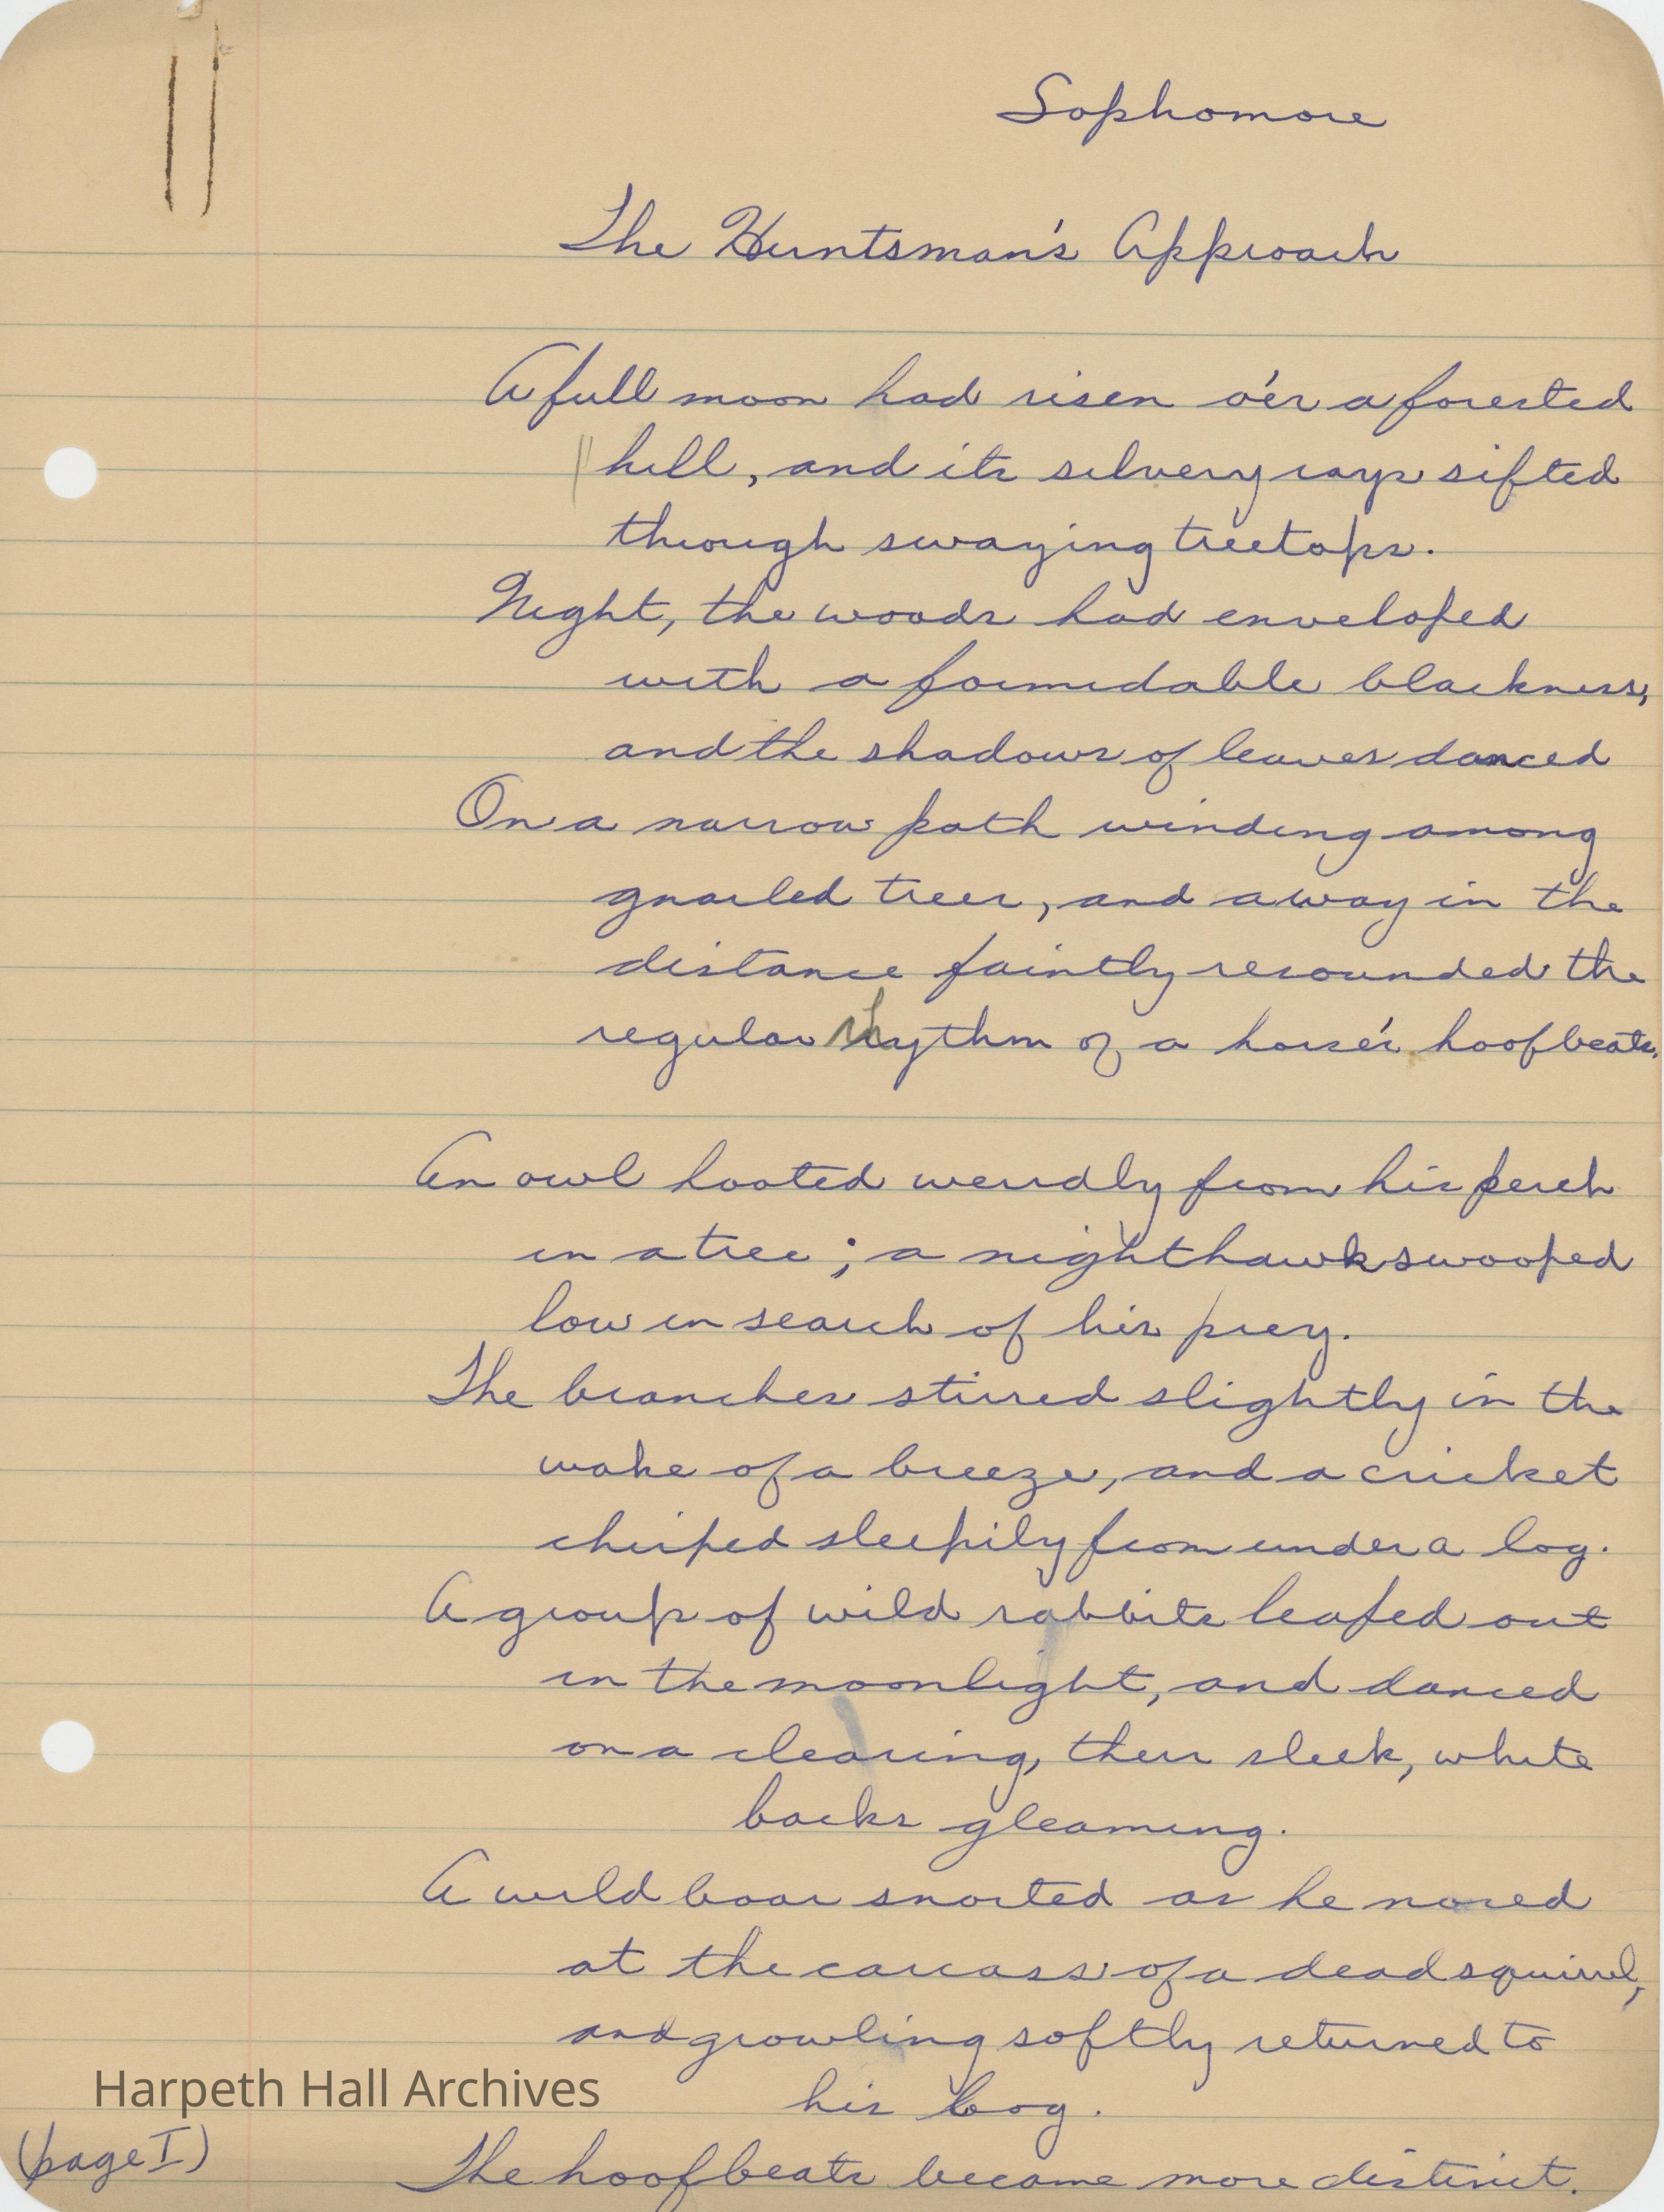 Sophomore
The Huntsman's Approach
A full moon had risen o'er a forested
hill, and its silvery rays sifted
through swaying treetops.
Night, the woods had enveloped
with a formidable blackness,
and the shadows of leaves danced
On a narrow path winding among
gnarled trees, and away in the
distance faintly resounded the
regular rhythm of a horse's hoofbeats.
An owl hooted weirdly from his perch
in a tree; a nighthawk swooped
low in search of his prey.
The branches stirred slightly in the
wake of a breeze, and a cricket
chirped sleepily from under a log.
A group of wild rabbits leaped out
in the moonlight, and danced
on a clearing, their sleek, white
backs gleaming.
A wild boar snorted as he nosed
at the carcass of a dead squirrel,
and growling softly returned to
his bog.
Harpeth Hall Archives
(page I)
The hoofbeats became more distinct.